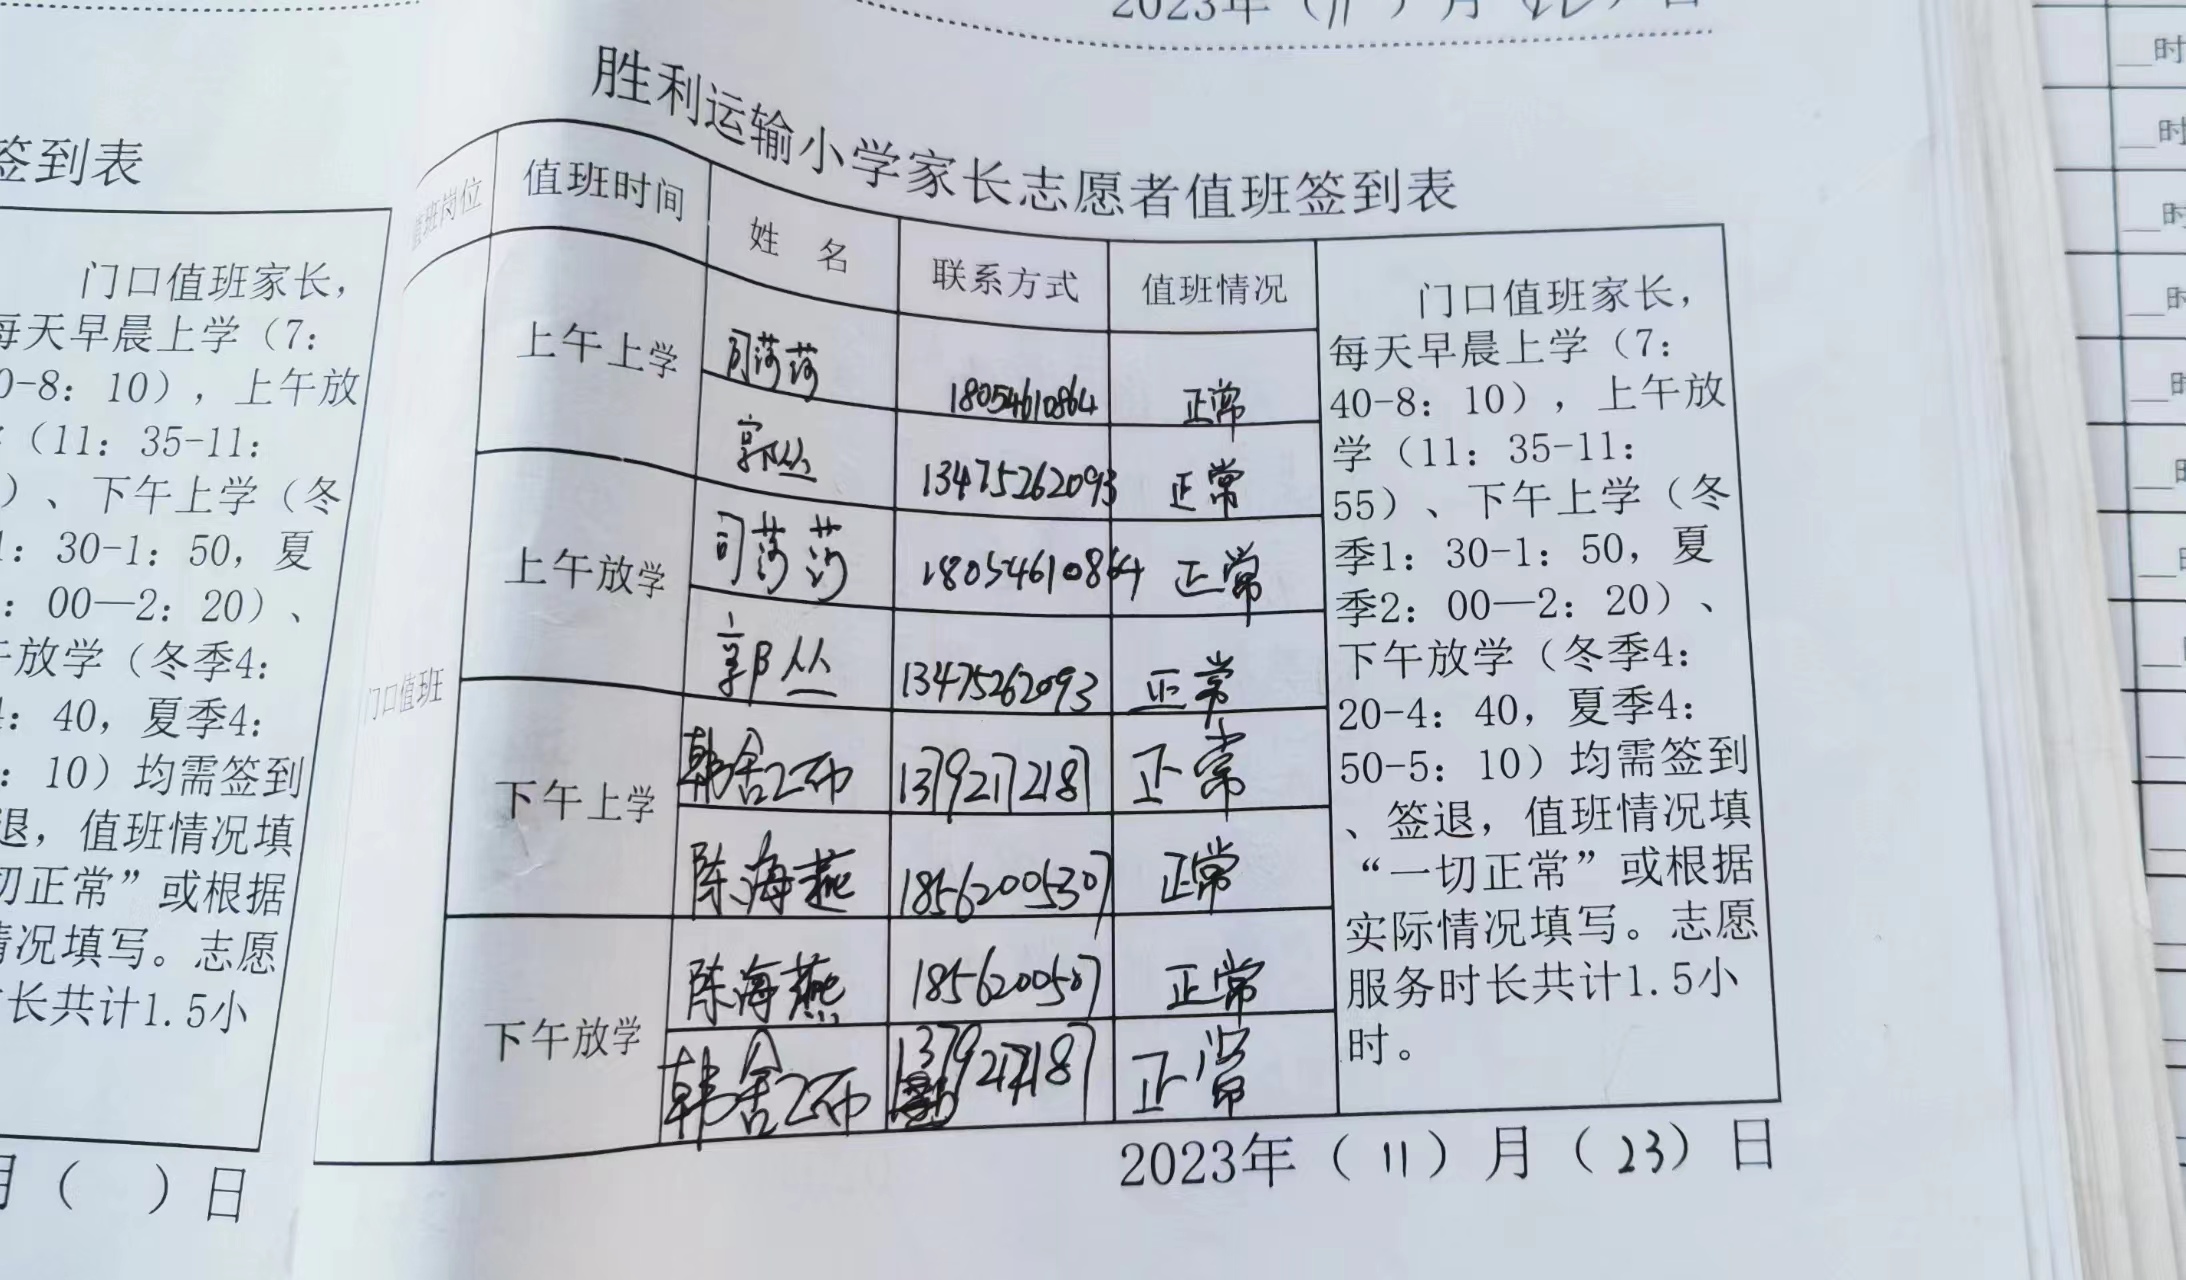 2023年（11）月
胜利运输小学家长志愿者值班签到表
值班岗位 值班时间 姓 名 联系方式 值班情况
门口值班
上午上学 司莎莎 18054610864 正常
郭丛 13475262093 正常
上午放学 司莎莎 18054610864 正常
郭丛 13475262093 正常
下午上学 韩 1379217218 正常
陈海燕 18562005307 正常
下午放学 陈海燕 1856200507 正常
韩 正常
门口值班家长，
每天早晨上学（7：
40-8：10），上午放
学（11：35-11：
55）、下午上学（冬
季1：30-1：50，夏
季2：00—2：20）、
下午放学（冬季4：
20-4：40，夏季4：
50-5：10）均需签到
、签退，值班情况填
“一切正常”或根据
实际情况填写。志愿
服务时长共计1.5小
时。
2023年（11）月（23）日
签到表
门口值班家长，
每天早晨上学（7：
0-8：10），上午放
（11：35-11：
）、下午上学（冬
：30-1：50，夏
：00—2：20）、
放学（冬季4：
：40，夏季4：
：10）均需签到
退，值班情况填
切正常”或根据
情况填写。志愿
长共计1.5小
月（ ）日
时
时
时
时
时
时